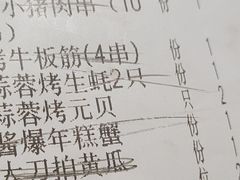 小猪肉串(10
)
烤牛板筋(4串) 份 1
蒜蓉烤生蚝2只 只 2
蒜蓉烤元贝 份 1
酱爆年糕蟹 份 1
大刀拍黄瓜 份 1